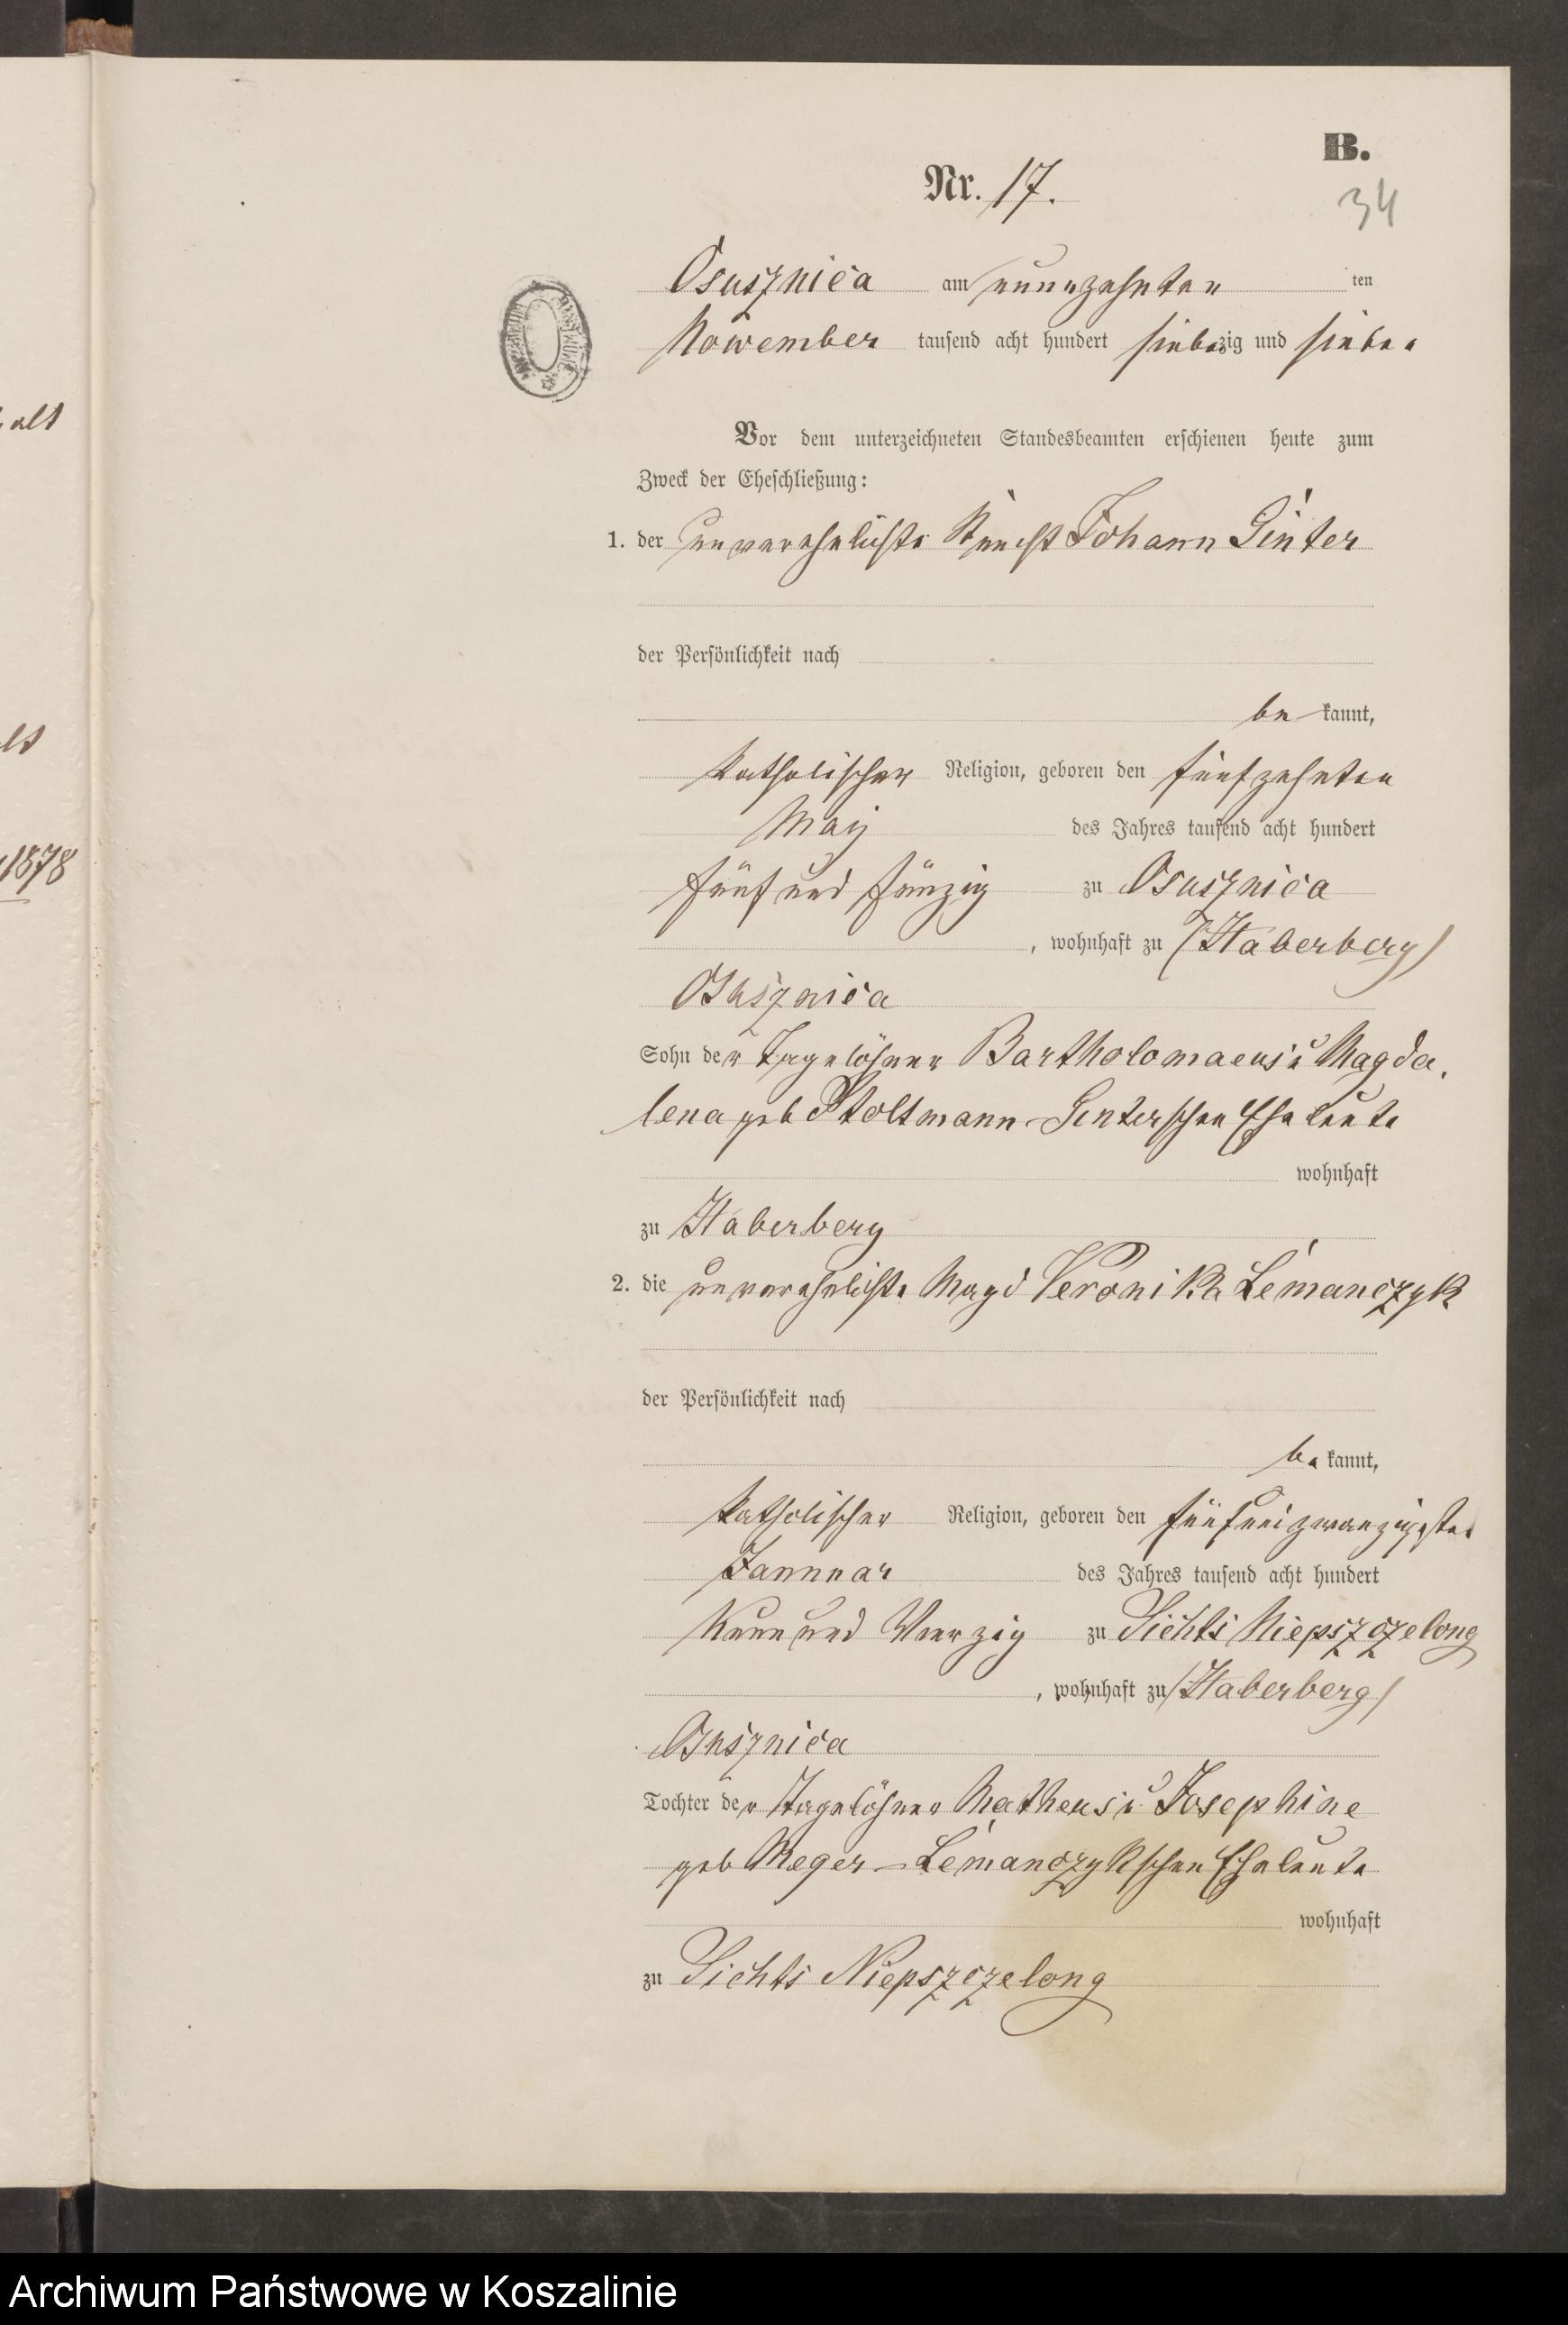 B.
Nr. 17.
34
Osusznica am neunzehnten ten
November tausend acht hundert siebenzig und sieben
Vor dem unterzeichneten Standesbeamten erschienen heute zum
Zweck der Eheschließung:
1. der unverehelichte Knecht Johann Ginter
der Persönlichkeit nach
be kannt,
katholischer Religion, geboren den fünfzehnten
May des Jahres tausend acht hundert
fünf und fünzig zu Osusznica
, wohnhaft zu (Haberberg)
Osusznica
Sohn der Tagelöhner Bartholomaeus u Magda
lena geb Stoltmann-Ginterschen Eheleute
wohnhaft
zu Haberberg
2. die unverehelichte Magd Veronika Lemanczyk
der Persönlichkeit nach
be kannt,
katholischer Religion, geboren den
Januar des Jahres tausend acht hundert
Neun und Vierzig zu Sichts Niepszczelong
, wohnhaft zu (Haberberg)
Osusznica
Tochter der Tagelöhner Matheus u Josephine
geb Reger-Lemanczykschen Eheleute
wohnhaft
zu Sichts Niepszczelong
alt
1878
Archiwum Państwowe w Koszalinie